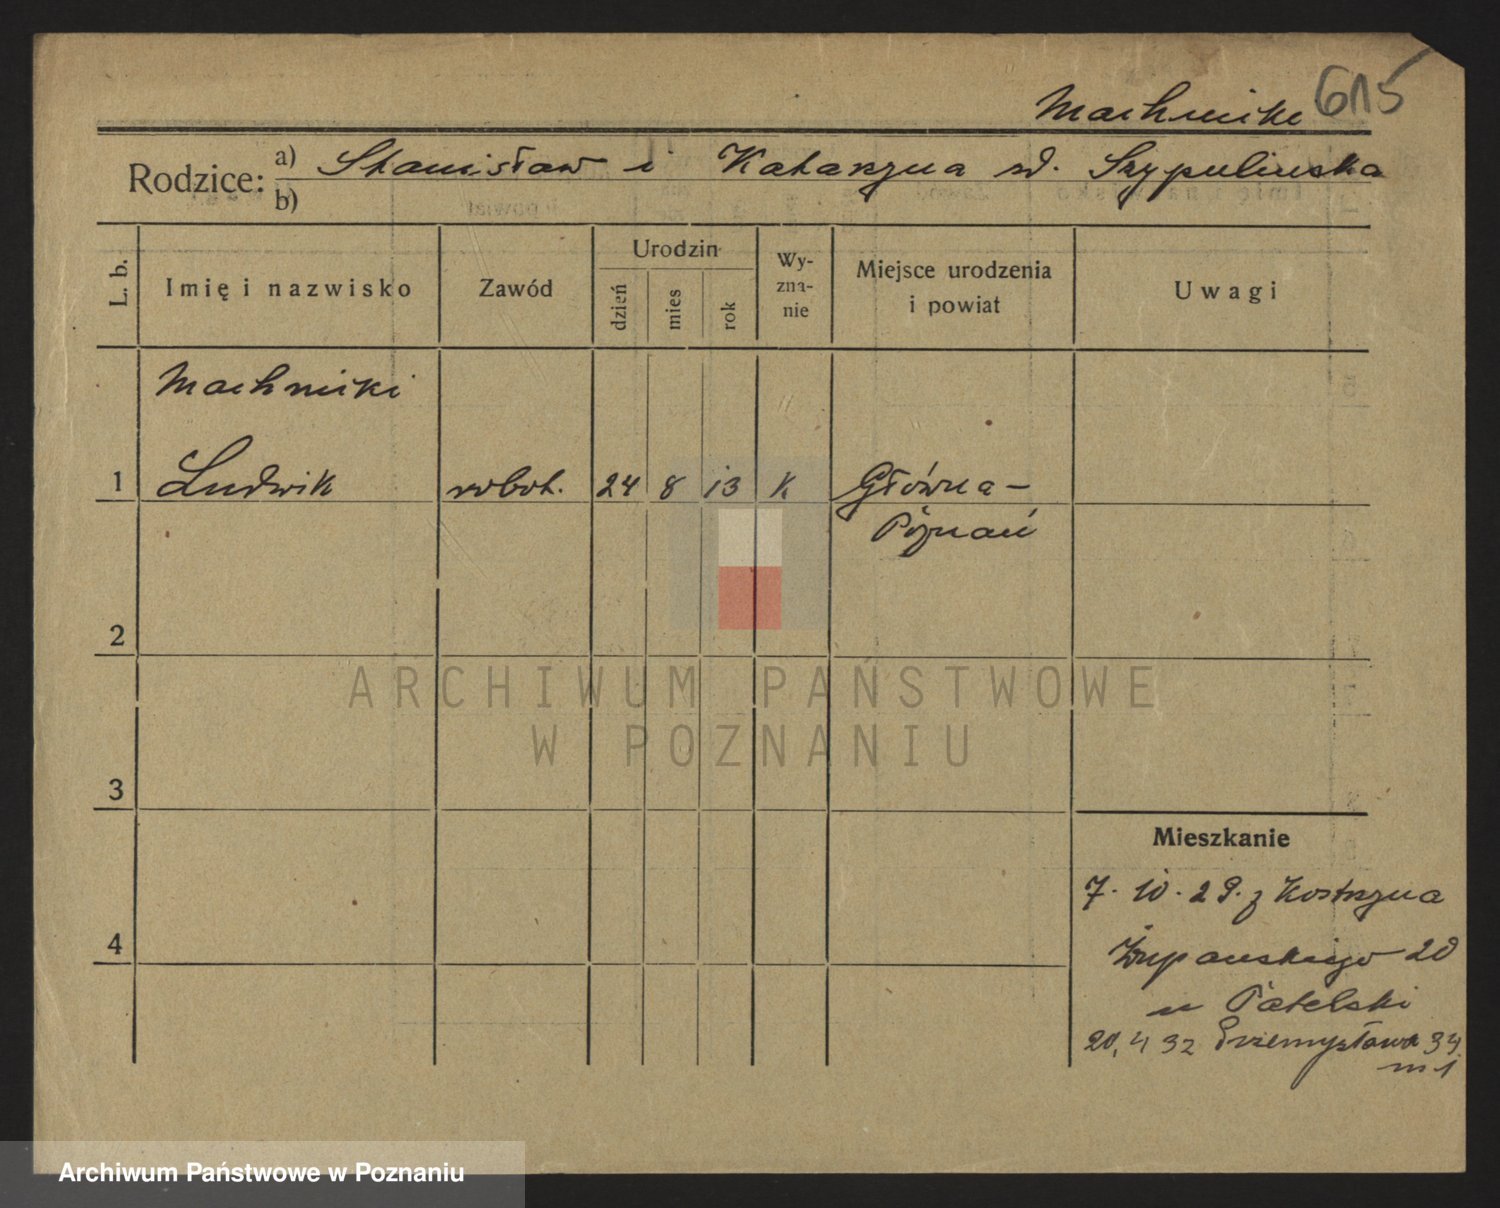 Machnicki 615
Rodzice: a) Stanisław i Katarzyna zd. Szypulinska
b)
L. b. Imię i nazwisko Zawód Urodzin dzień mies rok Wyzna-nie Miejsce urodzenia i powiat Uwagi
Machnicki
1 Ludwik robot. 24 8 13 K Główna –
Poznań
2
ARCHIWUM PAŃSTWOWE
W POZNANIU
3
Mieszkanie
7. 10. 29. z Kostrzyna
4
Żupańskiego 20
u Patelski
20, 4 32 Przemysława 34.
m 1
Archiwum Państwowe w Poznaniu